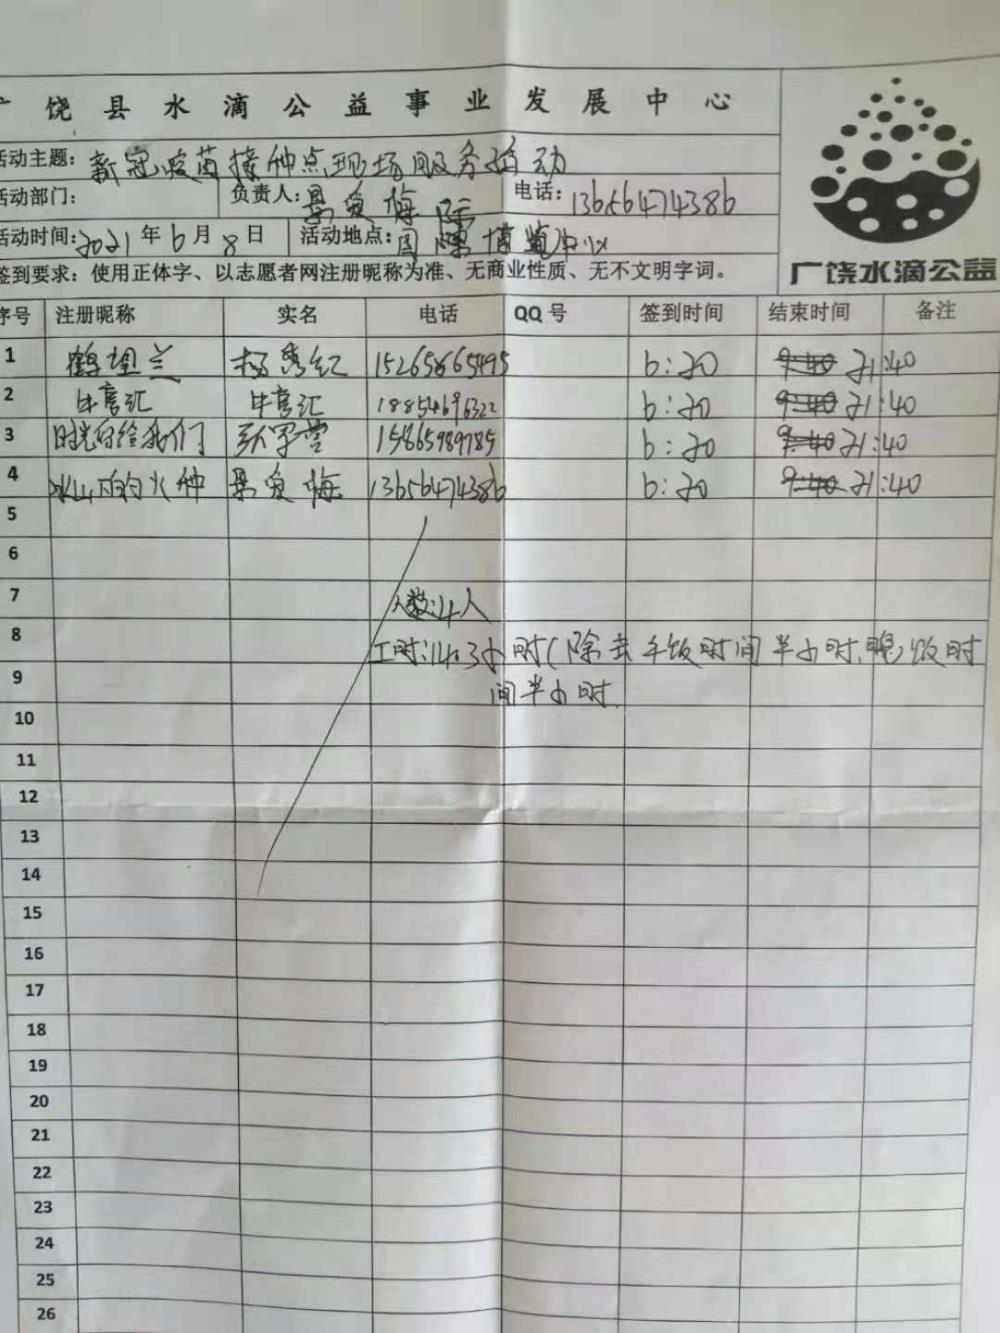 广饶县水滴公益事业发展中心
活动主题：新冠疫苗接种点现场服务活动
活动部门： 负责人：景爱梅 电话：13656474386
活动时间：2021年6月8日 活动地点：国际博览中心
签到要求：使用正体字、以志愿者网注册昵称为准、无商业性质、无不文明字词。
广饶水滴公益
序号 注册昵称 实名 电话 QQ号 签到时间 结束时间 备注
1 鹤望兰 杨秀红 6:20 9:40 21:40
2 牛喜汇 牛喜汇 18854696322 6:20 9:40 21:40
3 时光自给我们 6:20 9:40 21:40
4 冰山内的火种 景爱梅 13656474386 6:20 9:40 21:40
5
6
7
人数：4人
8
工时：14.3小时（除去午饭时间半小时，晚饭时
9
间半小时
10
11
12
13
14
15
16
17
18
19
20
21
22
23
24
25
26